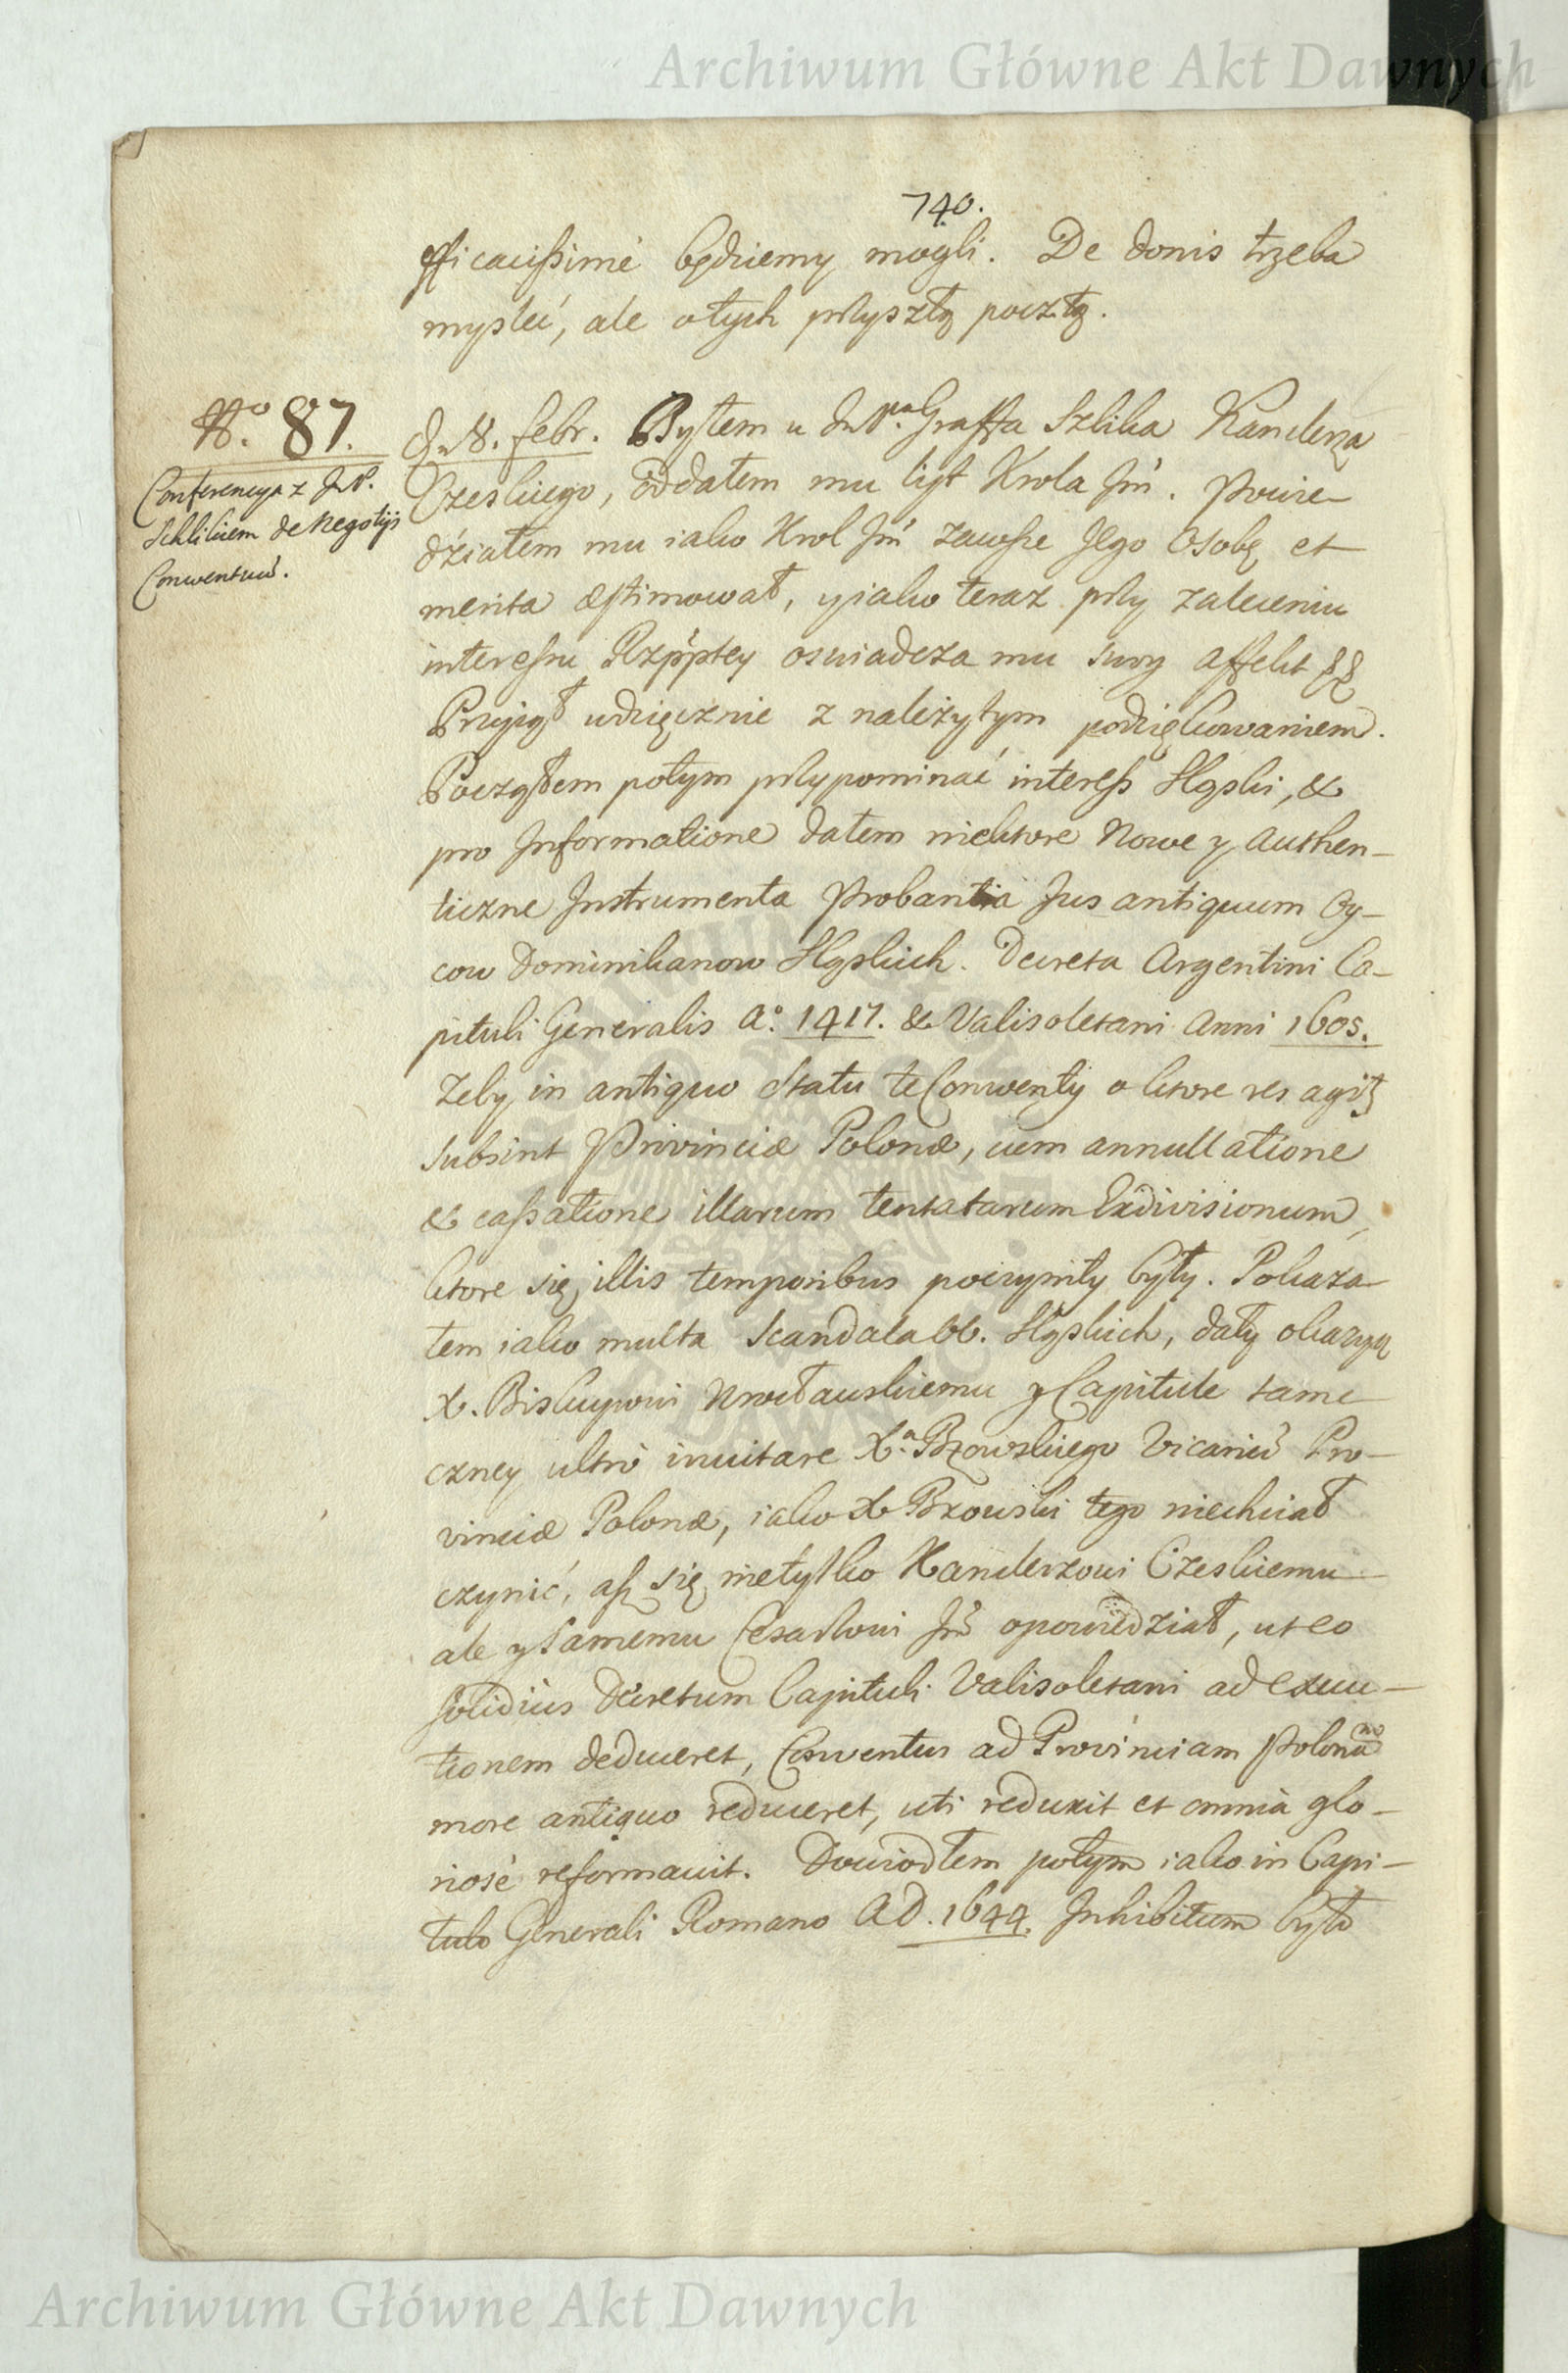 Archiwum Główne Akt Dawnych
740.
efficacissimè będziemy mogli. De donis trzeba
mysleć, ale o tych przyszłą pocztą.
No. 87.
Conferencya z JmP.
Schlikiem de Negotijs
Conventuu.
d. 8. febr. Byłem u JmPa. Graffa Szlika Kanclerza
Czeskiego, oddałem mu list Krola Jm. Powie-
działem mu iako Krol Jm zawsze Jego Osobę et
merita æstimował, y iako teraz przy zaleceniu
interessu Rzpptey oswiadcza mu swoy affekt
Przyiął wdzięcznie z należytym podziękowaniem.
Począłem potym przypominać interess Sląski, &
pro Informatione dałem niektore Nowe y Authen-
ticzne Instrumenta Probantia Jus antiquum Oy-
cow Dominikanow Sląskich. Decreta Argentini Ca-
pituli Generalis Ao. 1417. & Valisoletani Anni 1605.
Zeby in antiquo Statu te Conwenty o ktore res agit
subsint Provinciæ Polonæ, cum annullatione
& cassatione illarum tentatarum Exdivisionum,
ktore się illis temporibus poczyniły były. Pokaza-
łem iako multa Scandala Sląskich, dały okazyą
X. Biskupowi Wrocławskiemu y Capitule tame-
czney ultrò invitare Xa. Bzowskiego Vicariu Pro-
vinciæ Polonæ, iako X Bzowski tego niechciał
czynić, asz się nietylko Kanclerzowi Czeskiemu
ale y samemu Cesarzowi Jm opowiedział, ut eo
solidius Decretum Capituli Valisoletani ad execu-
tionem deduceret, Conventus ad Provinciam Polonã
more antiquo reduceret, uti reduxit et omnia glo-
riosè reformavit. Dowiodłem potym iako in Capi-
tulo Generali Romano AD. 1644. Inhibitum było
Archiwum Główne Akt Dawnych